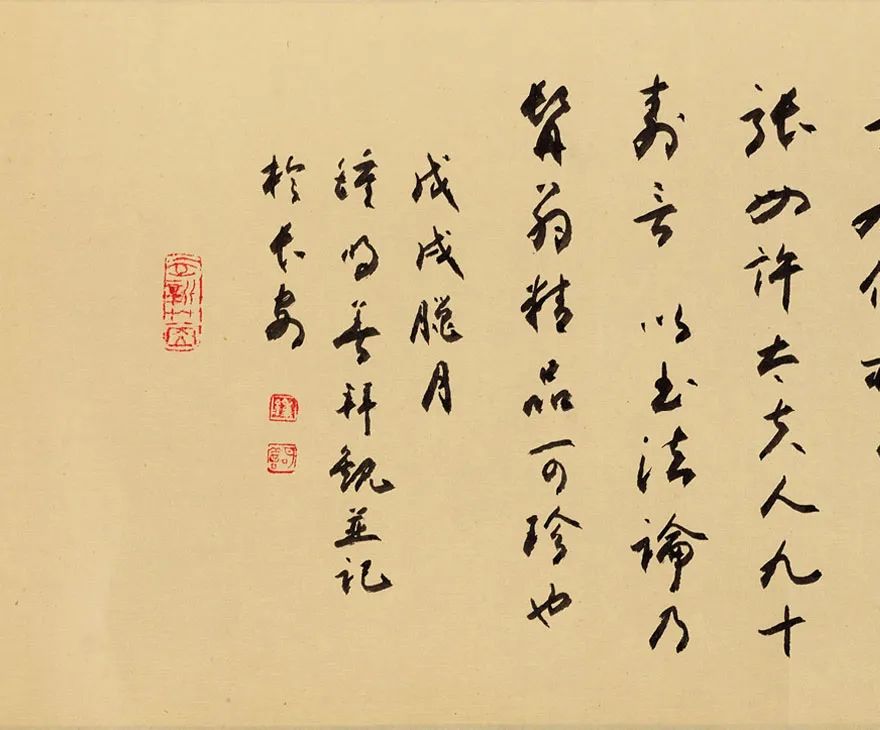 張母許太夫人九十
壽言 以書法論乃
髯翁精品可珍也
戊戌臘月
鍾明善拜觀並記
於長安